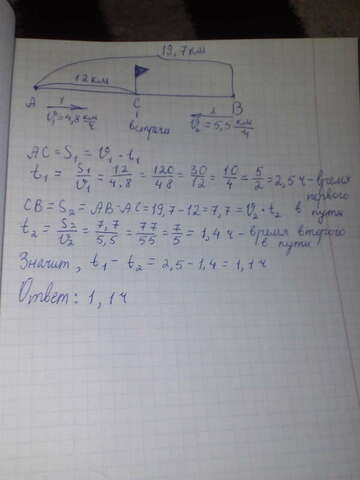 19,7км
12 км
A C B
1 2
v₁=4,8 км/ч встреча v₂=5,5 км/ч
AC = S₁ = v₁ · t₁
t₁ = S₁/v₁ = 12/4,8 = 120/48 = 30/12 = 10/4 = 5/2 = 2,5 ч - время
первого
CB = S₂ = AB-AC = 19,7-12 = 7,7 = v₂ · t₂ в пути
t₂ = S₂/v₂ = 7,7/5,5 = 77/55 = 7/5 = 1,4 ч - время второго
в пути
Значит, t₁ - t₂ = 2,5 - 1,4 = 1,1 ч
Ответ: 1,1ч